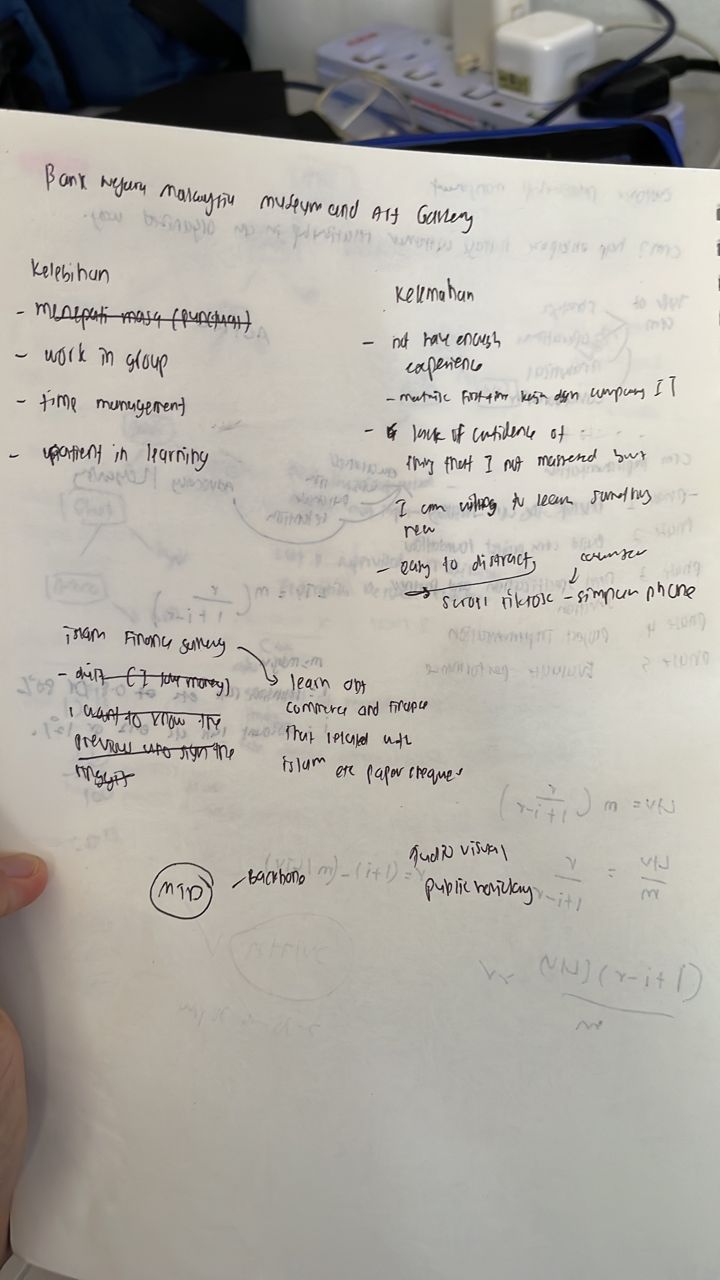 Bank Negara Malaysia Museum and Art Gallery
Kelebihan
- menepati masa (punctual)
- work in group
- time management
- patient in learning
Kelemahan
- not have enough
experience
- first time kerja dgn company IT
- lack of confidence of
thing that I not mastered but
I am willing to learn something
new
- easy to distract,
scroll tiktok - simpan phone
counter
islam Finance gallery
- duit (I love money)
i want to know the
previous who sign the
ringgit
learn abt
commerce and finance
that related with
islam etc paper cheque
MTD
- Backbone
audio visual
public holiday